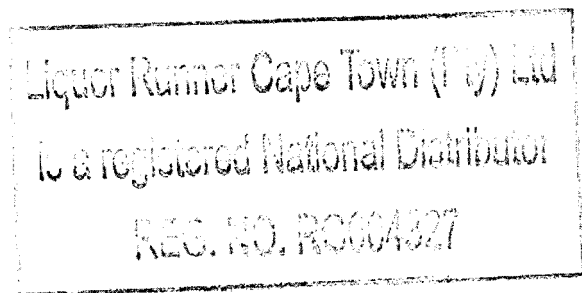 Liquor Runner Cape Town (Pty) Ltd
is a registered National Distributor
REG. NO. RC004327